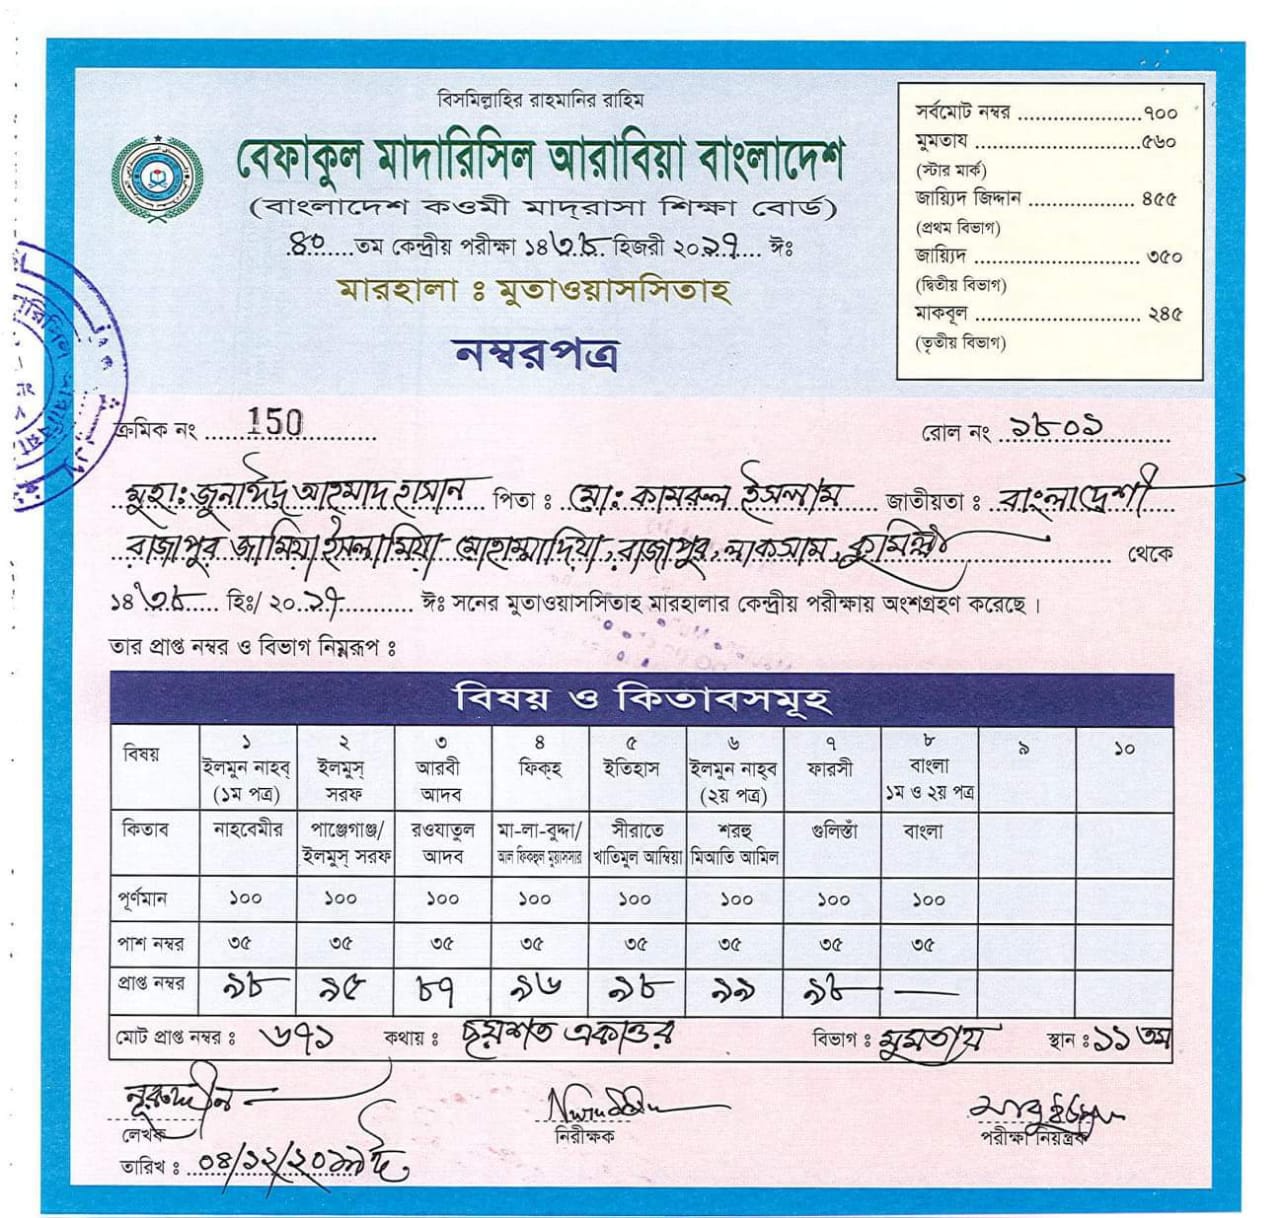 বিসমিল্লাহির রাহমানির রাহিম
বেফাকুল মাদারিসিল আরাবিয়া বাংলাদেশ
(বাংলাদেশ কওমী মাদ্‌রাসা শিক্ষা বোর্ড)
৪০ তম কেন্দ্রীয় পরীক্ষা ১৪৩৮ হিজরী ২০১৭ ঈঃ
মারহালা ঃ মুতাওয়াসসিতাহ
নম্বরপত্র
সর্বমোট নম্বর .....................৭০০
মুমতায ............................৫৬০
(স্টার মার্ক)
জায়্যিদ জিদ্দান .................. ৪৫৫
(প্রথম বিভাগ)
জায়্যিদ ............................ ৩৫০
(দ্বিতীয় বিভাগ)
মাকবূল ............................ ২৪৫
(তৃতীয় বিভাগ)
ক্রমিক নং 150 রোল নং ১৮০১
মুহা: জুনাঈদ আহমাদ হাসান পিতা ঃ মো: কামরুল ইসলাম জাতীয়তা ঃ বাংলাদেশী
রাজাপুর জামিয়া ইসলামিয়া মোহাম্মাদিয়া, রাজাপুর, লাকসাম, কুমিল্লা থেকে
১৪৩৮ হিঃ/ ২০১৭ ঈঃ সনের মুতাওয়াসসিতাহ মারহালার কেন্দ্রীয় পরীক্ষায় অংশগ্রহণ করেছে।
তার প্রাপ্ত নম্বর ও বিভাগ নিম্নরূপ ঃ
বিষয় ও কিতাবসমূহ
১ ২ ৩ ৪ ৫ ৬ ৭ ৮ ৯ ১০
বিষয় ইলমুন নাহব্ ইলমুস্ আরবী ফিক্হ ইতিহাস ইলমুন নাহ্ব ফারসী বাংলা
(১ম পত্র) সরফ আদব (২য় পত্র) ১ম ও ২য় পত্র
কিতাব নাহবেমীর পাঞ্জেগাঞ্জ/ রওযাতুল মা-লা-বুদ্দা/ সীরাতে শরহু গুলিস্তাঁ বাংলা
ইলমুস্ সরফ আদব আল ফিকহুল মুয়াসসার খাতিমুল আম্বিয়া মিআতি আমিল
পূর্ণমান ১০০ ১০০ ১০০ ১০০ ১০০ ১০০ ১০০ ১০০
পাশ নম্বর ৩৫ ৩৫ ৩৫ ৩৫ ৩৫ ৩৫ ৩৫ ৩৫
প্রাপ্ত নম্বর ৯৮ ৯৫ ৮৭ ৯৬ ৯৮ ৯৯ ৯৮ —
মোট প্রাপ্ত নম্বর ঃ ৬৭১ কথায় ঃ ছয়শত একাত্তর বিভাগ ঃ মুমতায স্থান ঃ ১১ তম
নূরুদ্দীন Nuruddin
লেখক নিরীক্ষক পরীক্ষা নিয়ন্ত্রক
তারিখ ঃ ০৪/১২/২০১৯ঈ.